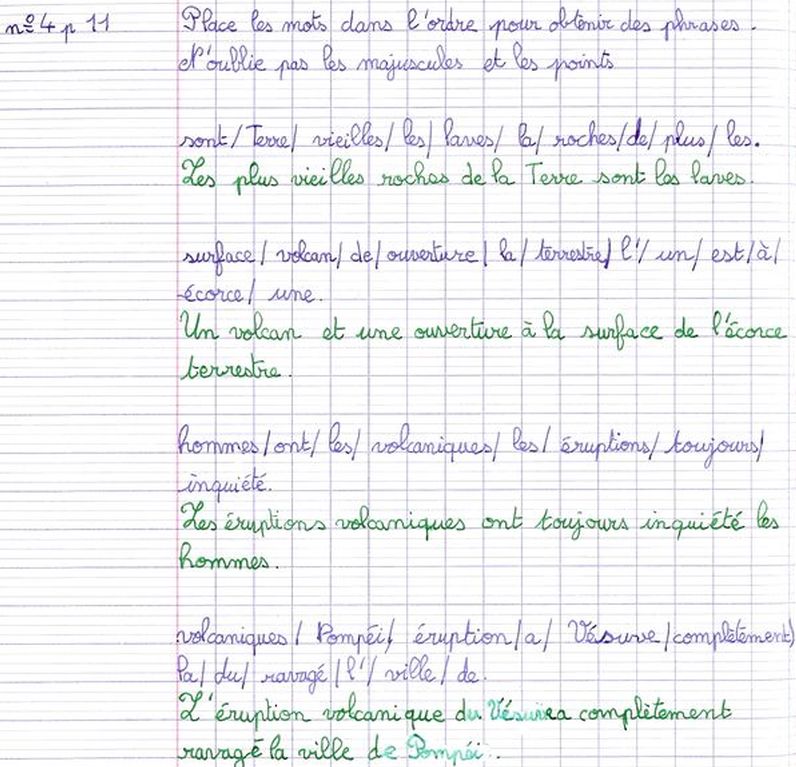 n° 4 p 11
Place les mots dans l'ordre pour obtenir des phrases.
N'oublie pas les majuscules et les points
sont / Terre / vieilles / les / laves / la / roches / de / plus / les.
Les plus vieilles roches de la Terre sont les laves.
surface / volcan / de / ouverture / la / terrestre / l' / un / est / à /
écorce / une.
Un volcan et une ouverture à la surface de l'écorce
terrestre.
hommes / ont / les / volcaniques / les / éruptions / toujours /
inquiété.
Les éruptions volcaniques ont toujours inquiété les
hommes.
volcaniques / Pompéi / éruption / a / Vésuve / complètement /
la / du / ravagé / l' / ville / de.
L'éruption volcanique du Vésuve a complètement
ravagé la ville de Pompéi.